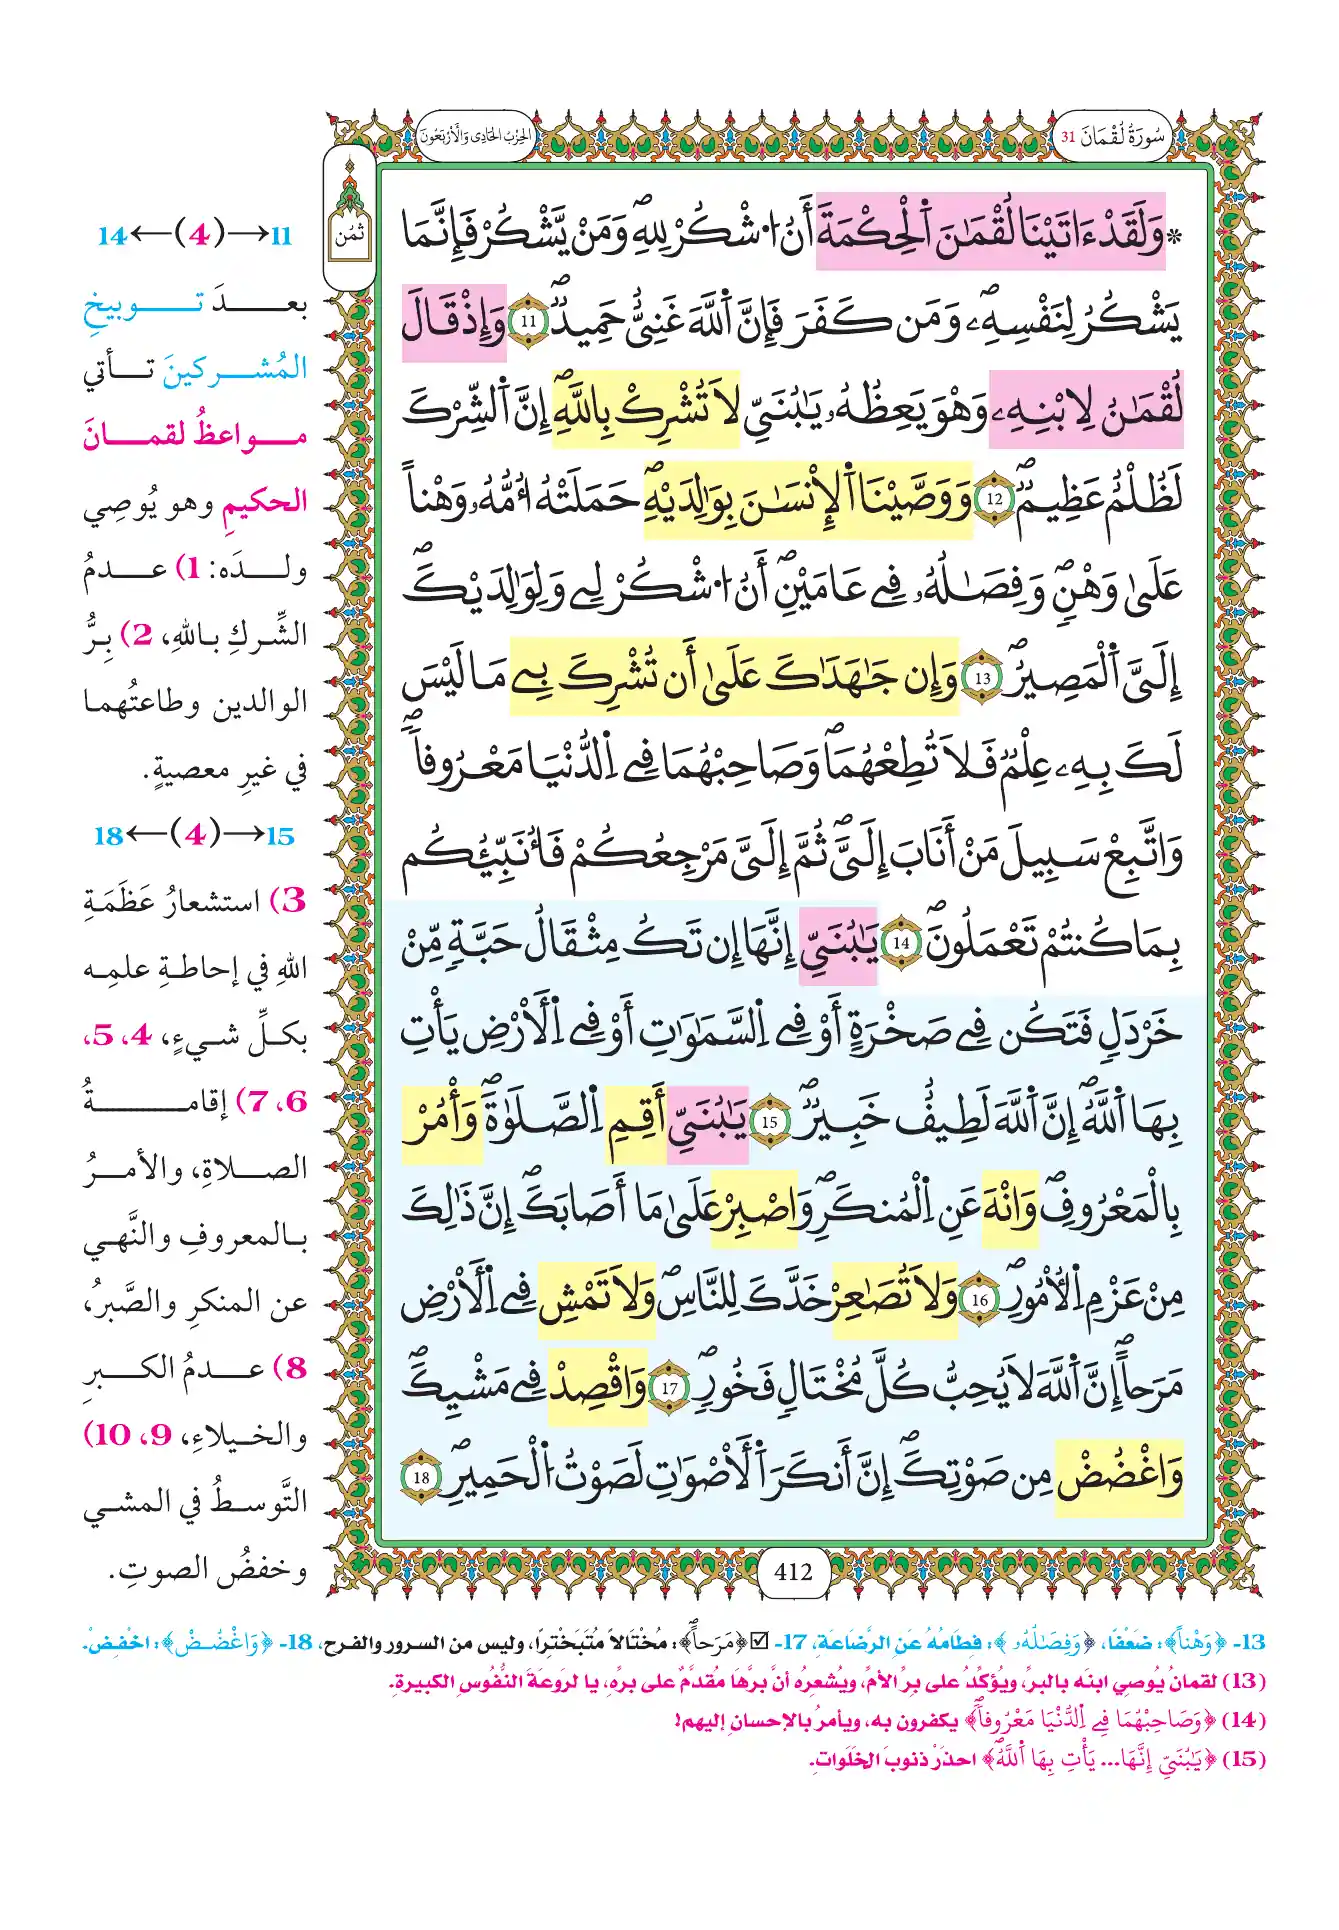 سُورَةُ لُقْمَانَ 31
الحِزْبُ الحَادِي وَالأَرْبَعُونَ
ثُمُن
* وَلَقَدْ ءَاتَيْنَا لُقْمَٰنَ اَ۬لْحِكْمَةَ أَنُ اُ۟شْكُرْ لِلهِۖ وَمَنْ يَّشْكُرْ فَإِنَّمَا
يَشْكُرُ لِنَفْسِهِۦۖ وَمَن كَفَرَ فَإِنَّ اَ۬للَّهَ غَنِيٌّ حَمِيدٞۖ 11 وَإِذْ قَالَ
لُقْمَٰنُ لِابْنِهِۦ وَهْوَ يَعِظُهُۥ يَٰبُنَيِّ لَا تُشْرِكْ بِاللَّهِۖ إِنَّ اَ۬لشِّرْكَ
لَظُلْمٌ عَظِيمٞۖ 12 وَوَصَّيْنَا اَ۬لْإِنسَٰنَ بِوَٰلِدَيْهِۖ حَمَلَتْهُ أُمُّهُۥ وَهْناً
عَلَىٰ وَهْنٖۖ وَفِصَٰلُهُۥ فِے عَامَيْنِۖ أَنُ اُ۟شْكُرْ لِے وَلِوَٰلِدَيْكَۖ
إِلَيَّ اَ۬لْمَصِيرُۖ 13 وَإِن جَٰهَدَٰكَ عَلَىٰ أَن تُشْرِكَ بِے مَا لَيْسَ
لَكَ بِهِۦ عِلْمٞ فَلَا تُطِعْهُمَاۖ وَصَاحِبْهُمَا فِے اِ۬لدُّنْيَا مَعْرُوفاٗۖ
وَاتَّبِعْ سَبِيلَ مَنْ أَنَابَ إِلَيَّۖ ثُمَّ إِلَيَّ مَرْجِعُكُمْ فَأُنَبِّئُكُم
بِمَا كُنتُمْ تَعْمَلُونَۖ 14 يَٰبُنَيِّ إِنَّهَا إِن تَكُ مِثْقَالُ حَبَّةٖ مِّنْ
خَرْدَلٖ فَتَكُن فِے صَخْرَةٍ أَوْ فِے اِ۬لسَّمَٰوَٰتِ أَوْ فِے اِ۬لْأَرْضِ يَأْتِ
بِهَا اَ۬للَّهُۖ إِنَّ اَ۬للَّهَ لَطِيفٌ خَبِيرٞۖ 15 يَٰبُنَيِّ أَقِمِ اِ۬لصَّلَوٰةَۖ وَأْمُرْ
بِالْمَعْرُوفِۖ وَانْهَ عَنِ اِ۬لْمُنكَرِۖ وَاصْبِرْ عَلَىٰ مَا أَصَابَكَۖ إِنَّ ذَٰلِكَ
مِنْ عَزْمِ اِ۬لْأُمُورِۖ 16 وَلَا تُصَٰعِرْ خَدَّكَ لِلنَّاسِۖ وَلَا تَمْشِ فِے اِ۬لْأَرْضِ
مَرَحاًۖ إِنَّ اَ۬للَّهَ لَا يُحِبُّ كُلَّ مُخْتَالٖ فَخُورٖۖ 17 وَاقْصِدْ فِے مَشْيِكَۖ
وَاغْضُضْ مِن صَوْتِكَۖ إِنَّ أَنكَرَ اَ۬لْأَصْوَٰتِ لَصَوْتُ اُ۬لْحَمِيرِۖ 18
412
11←(4)→14
بعــدَ تــوبيخِ
المُشــركينَ تــأتي
مــواعظُ لقمــانَ
الحكيمِ وهو يُوصِي
ولــدَه: 1) عــدمُ
الشِّركِ بـاللهِ، 2) بِـرُّ
الوالدين وطاعتُهمـا
في غيرِ معصيةٍ.
15←(4)→18
3) استشعارُ عَظَمَةِ
اللهِ في إحاطةِ علمِه
بكلِّ شيءٍ، 4، 5،
6، 7) إقامــةُ
الصـلاةِ، والأمـرُ
بـالمعروفِ والنَّهـي
عن المنكرِ والصَّبرُ،
8) عــدمُ الكــبرِ
والخـيلاءِ، 9، 10)
التَّوسطُ في المشي
وخفضُ الصوتِ.
13- ﴿وَهْناً﴾: ضَعْفًا، ﴿وَفِصَٰلُهُۥ﴾: فِطَامُهُ عَنِ الرَّضَاعَةِ، 17- ☑﴿مَرَحاًۖ﴾: مُخْتَالاً مُتَبَخْتِرًا، وليس من السرور والفرح، 18- ﴿وَاغْضُضْ﴾: اخْفِضْ.
(13) لقمانُ يُوصِي ابنَه بالبرِّ، ويُؤكِّدُ على برِّ الأمِّ، ويُشعرُه أنَّ برَّهَا مُقدَّمٌ على برِّه، يا لروعَةَ النُّفُوسِ الكبيرةِ.
(14) ﴿وَصَاحِبْهُمَا فِے اِ۬لدُّنْيَا مَعْرُوفاٗۖ﴾ يكفرون به، ويأمرُ بالإحسانِ إليهم!
(15) ﴿يَٰبُنَيِّ إِنَّهَا... يَأْتِ بِهَا اَ۬للَّهُۖ﴾ احذرْ ذنوبَ الخَلَوات.